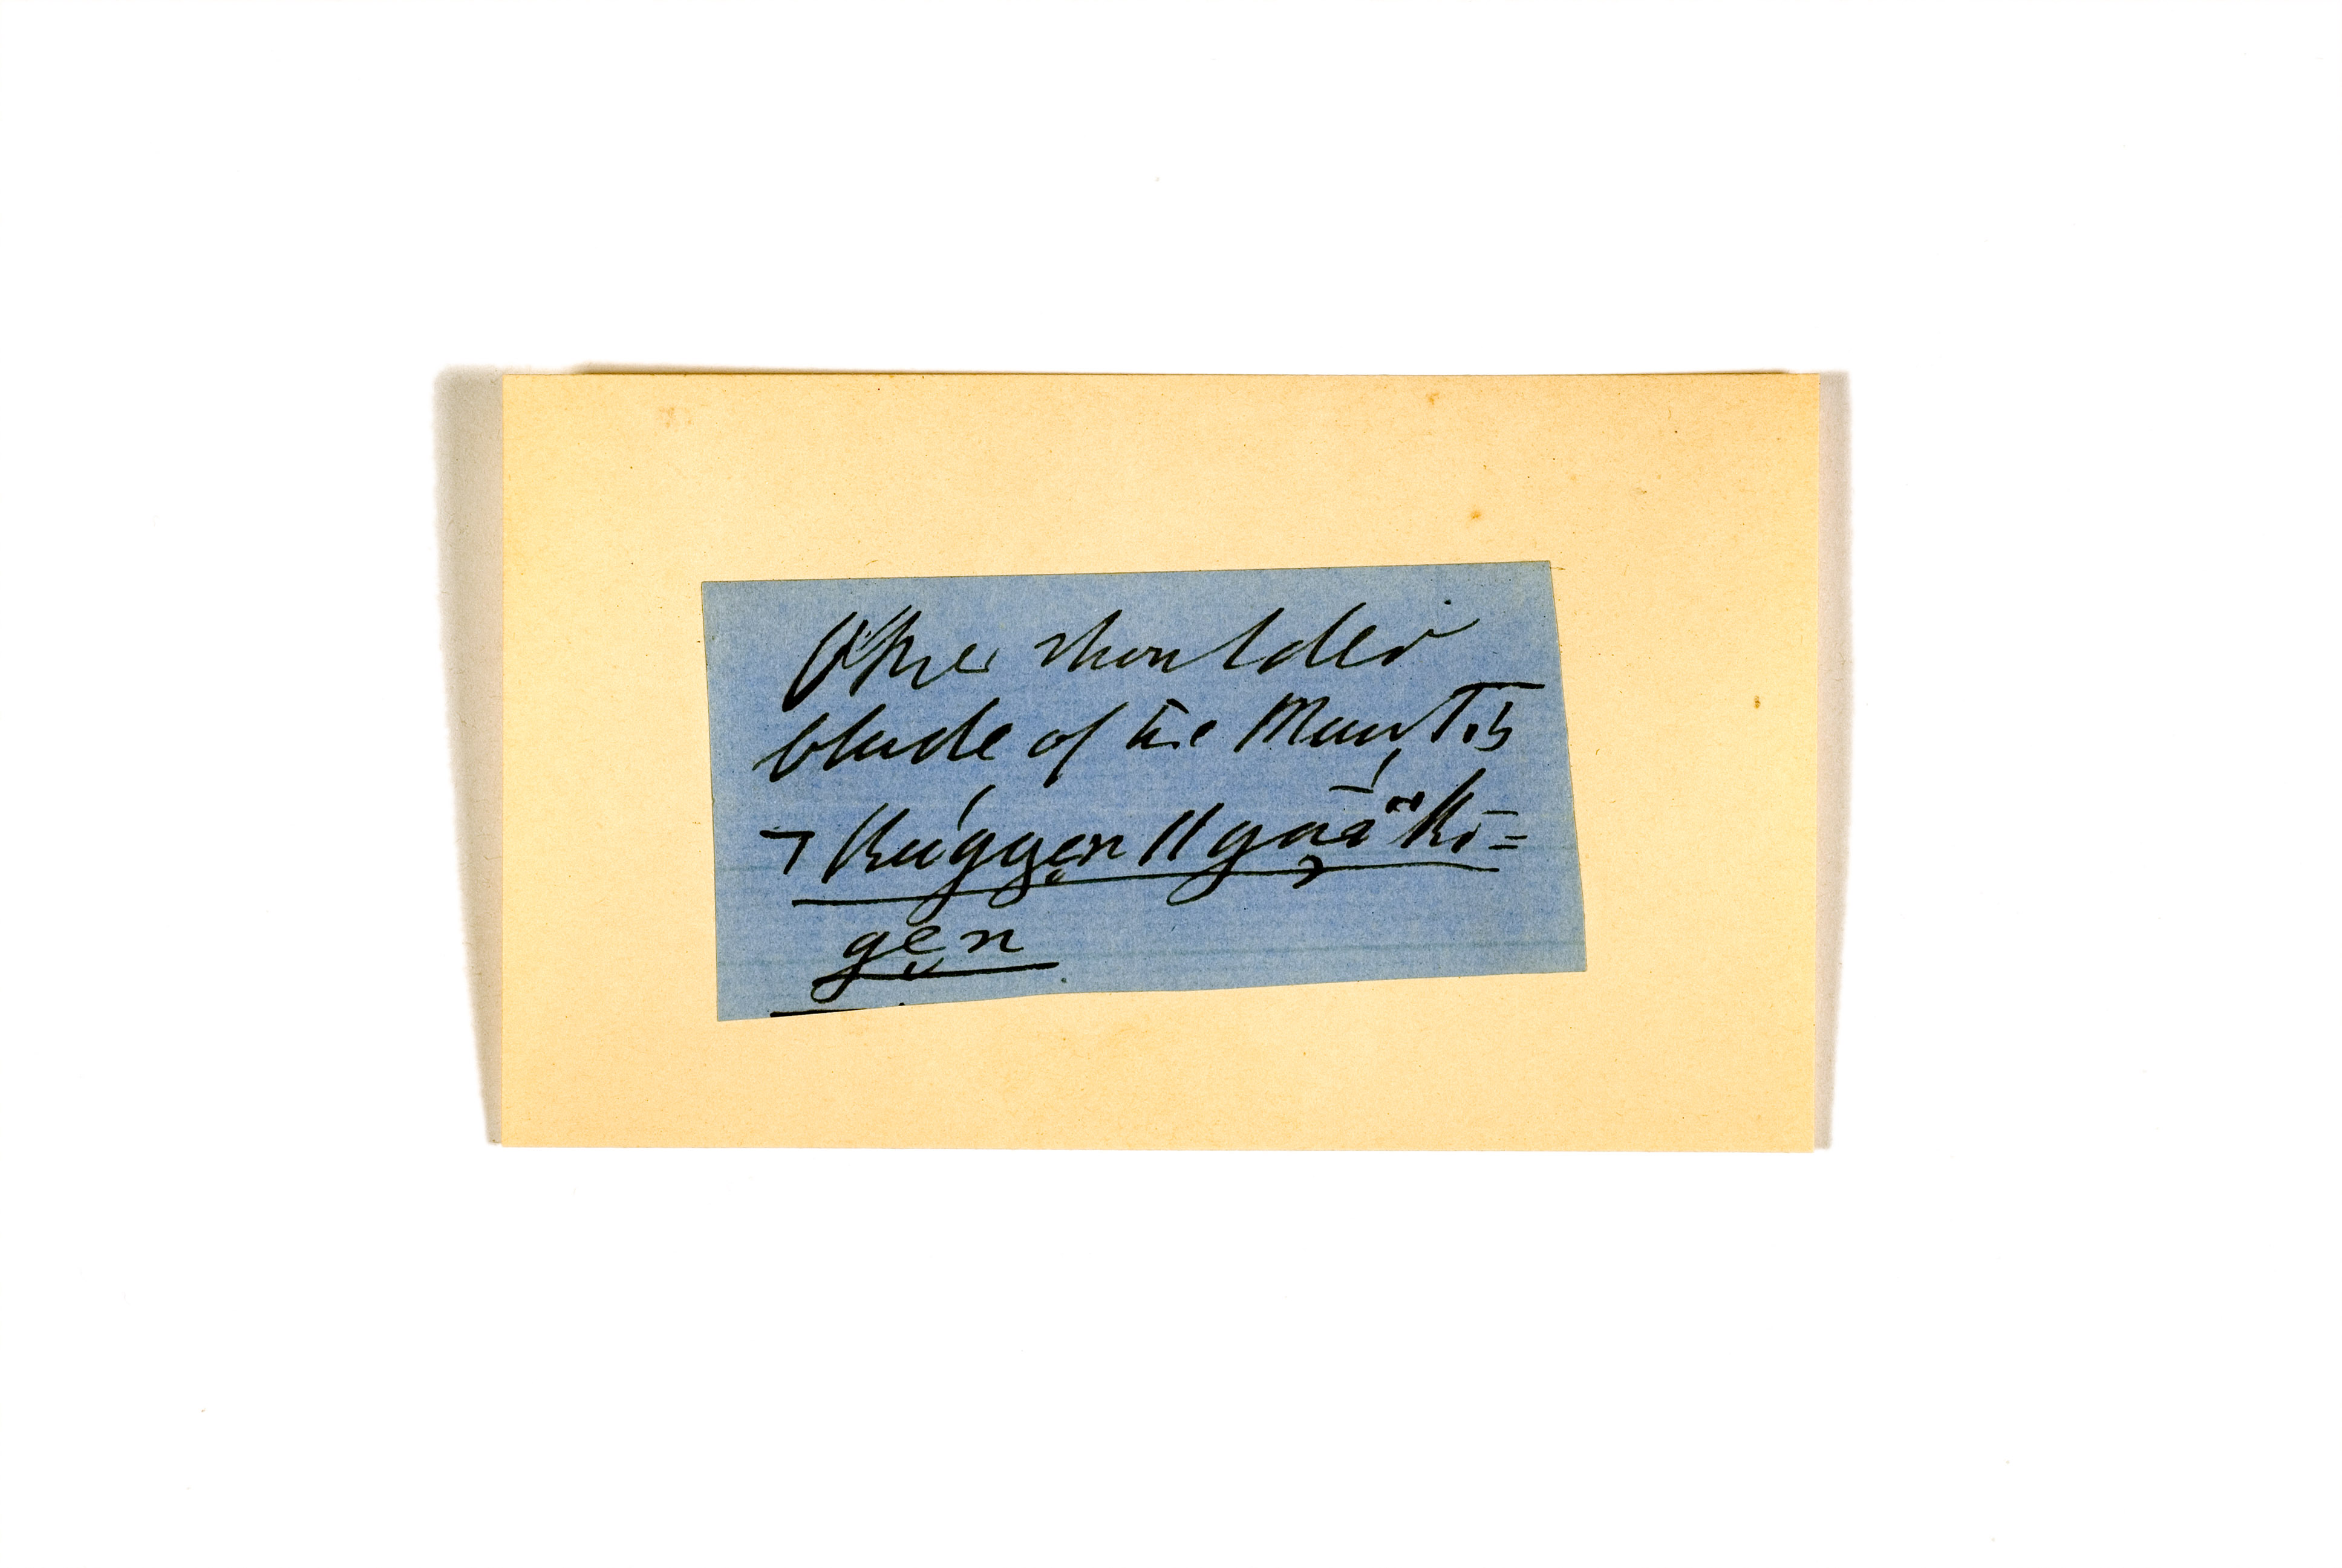 The shoulder
blade of the Mantis
⊤ Kúggen ǁgāá̰ "kĭ=
gen